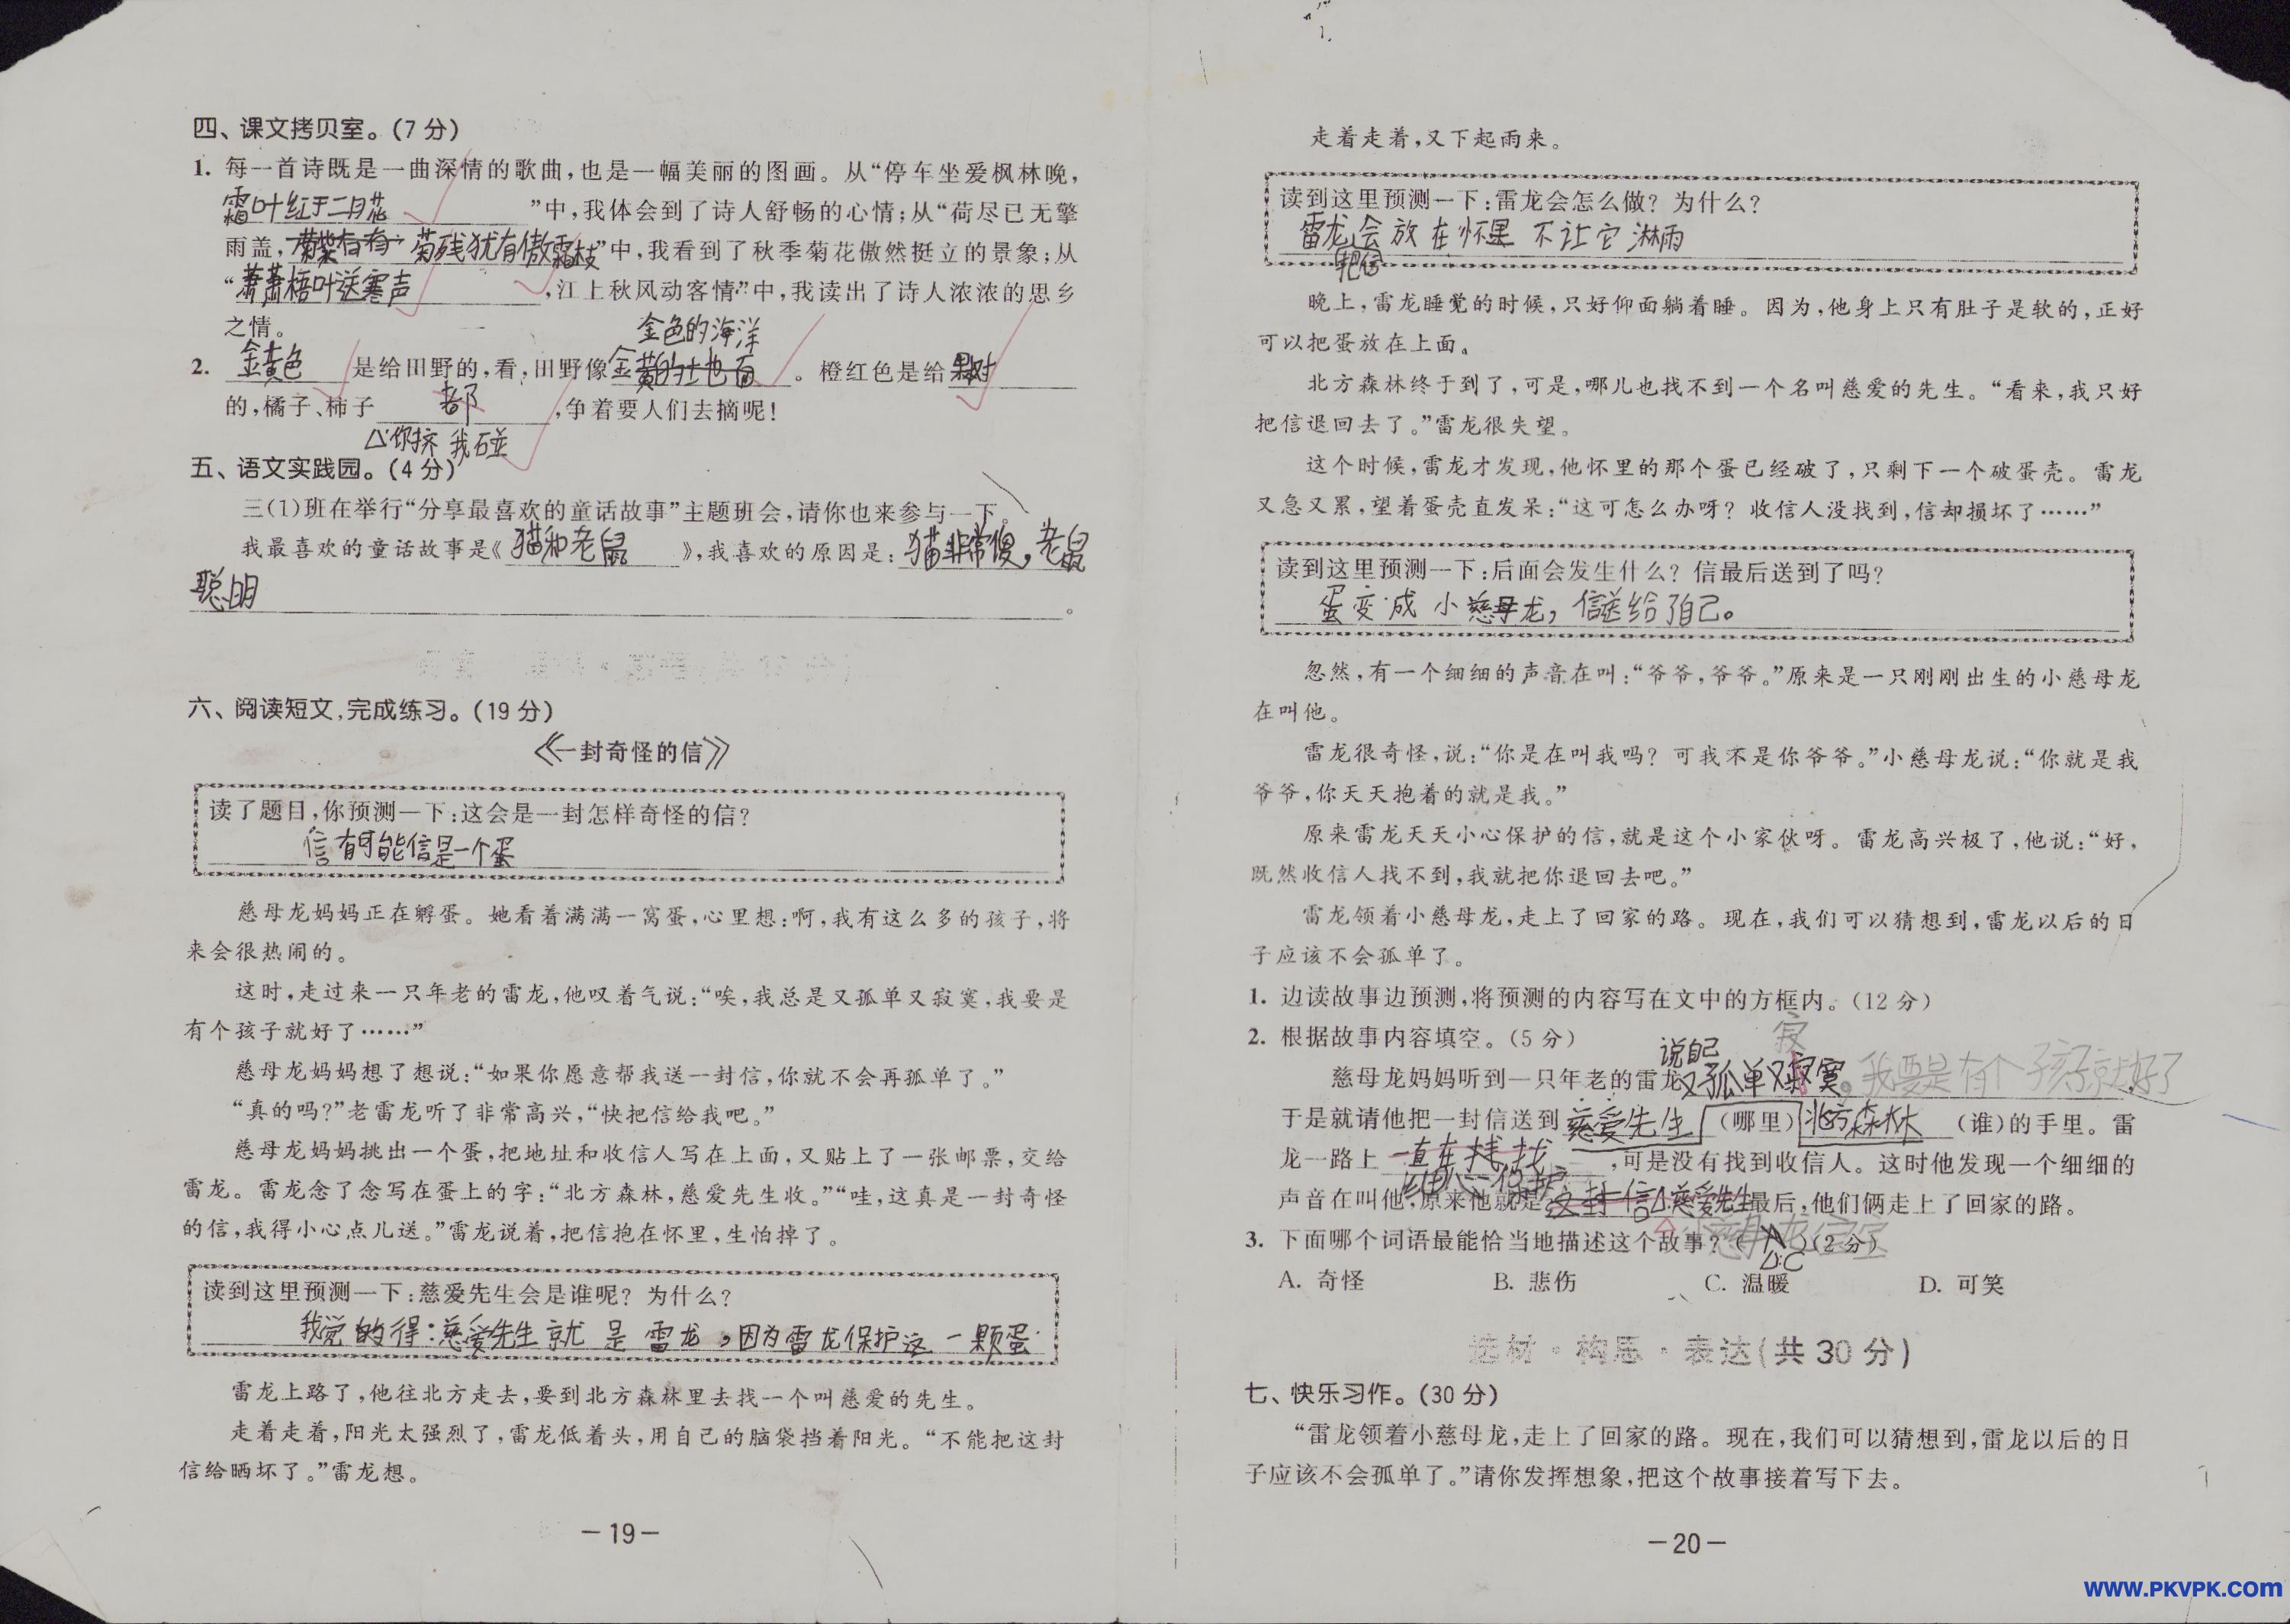 四、课文拷贝室。(7分)
1. 每一首诗既是一曲深情的歌曲,也是一幅美丽的图画。从“停车坐爱枫林晚,
霜叶红于二月花”中,我体会到了诗人舒畅的心情;从“荷尽已无擎
雨盖,菊残犹有傲霜枝”中,我看到了秋季菊花傲然挺立的景象;从
“萧萧梧叶送寒声,江上秋风动客情”中,我读出了诗人浓浓的思乡
之情。
金色的海洋
2. 金黄色是给田野的,看,田野像金黄的土地面。橙红色是给果树
的,橘子、柿子都,争着要人们去摘呢!
△你挤我碰
五、语文实践园。(4分)
三(1)班在举行“分享最喜欢的童话故事”主题班会,请你也来参与一下。
我最喜欢的童话故事是《猫和老鼠》,我喜欢的原因是:猫非常傻,老鼠
聪明。
六、阅读短文,完成练习。(19分)
《一封奇怪的信》
读了题目,你预测一下:这会是一封怎样奇怪的信?
信有可能信是一个蛋
慈母龙妈妈正在孵蛋。她看着满满一窝蛋,心里想:啊,我有这么多的孩子,将
来会很热闹的。
这时,走过来一只年老的雷龙,他叹着气说:“唉,我总是又孤单又寂寞,我要是
有个孩子就好了……”
慈母龙妈妈想了想说:“如果你愿意帮我送一封信,你就不会再孤单了。”
“真的吗?”老雷龙听了非常高兴,“快把信给我吧。”
慈母龙妈妈挑出一个蛋,把地址和收信人写在上面,又贴上了一张邮票,交给
雷龙。雷龙念了念写在蛋上的字:“北方森林,慈爱先生收。”“哇,这真是一封奇怪
的信,我得小心点儿送。”雷龙说着,把信抱在怀里,生怕掉了。
读到这里预测一下:慈爱先生会是谁呢?为什么?
我觉的得:慈爱先生就是雷龙,因为雷龙保护这一颗蛋
雷龙上路了,他往北方走去,要到北方森林里去找一个叫慈爱的先生。
走着走着,阳光太强烈了,雷龙低着头,用自己的脑袋挡着阳光。“不能把这封
信给晒坏了。”雷龙想。
—19—
走着走着,又下起雨来。
读到这里预测一下:雷龙会怎么做?为什么?
雷龙会放在怀里不让它淋雨
把信
晚上,雷龙睡觉的时候,只好仰面躺着睡。因为,他身上只有肚子是软的,正好
可以把蛋放在上面。
北方森林终于到了,可是,哪儿也找不到一个名叫慈爱的先生。“看来,我只好
把信退回去了。”雷龙很失望。
这个时候,雷龙才发现,他怀里的那个蛋已经破了,只剩下一个破蛋壳。雷龙
又急又累,望着蛋壳直发呆:“这可怎么办呀?收信人没找到,信却损坏了……”
读到这里预测一下:后面会发生什么?信最后送到了吗?
蛋变成小慈母龙,信送给了自己。
忽然,有一个细细的声音在叫:“爷爷,爷爷。”原来是一只刚刚出生的小慈母龙
在叫他。
雷龙很奇怪,说:“你是在叫我吗?可我不是你爷爷。”小慈母龙说:“你就是我
爷爷,你天天抱着的就是我。”
原来雷龙天天小心保护的信,就是这个小家伙呀。雷龙高兴极了,他说:“好,
既然收信人找不到,我就把你退回去吧。”
雷龙领着小慈母龙,走上了回家的路。现在,我们可以猜想到,雷龙以后的日
子应该不会孤单了。
1. 边读故事边预测,将预测的内容写在文中的方框内。(12分)
2. 根据故事内容填空。(5分)
寂
说自己
慈母龙妈妈听到一只年老的雷龙又孤单又寂寞。我要是有个孩子就好了,
于是就请他把一封信送到慈爱先生(哪里)北方森林(谁)的手里。雷
龙一路上一直在找,找,可是没有找到收信人。这时他发现一个细细的
小心保护
声音在叫他,原来他就是这封信△慈爱先生最后,他们俩走上了回家的路。
小慈母龙宝宝
3. 下面哪个词语最能恰当地描述这个故事?( A )(2分)
△:C
A. 奇怪 B. 悲伤 C. 温暖 D. 可笑
选材·构思·表达(共30分)
七、快乐习作。(30分)
“雷龙领着小慈母龙,走上了回家的路。现在,我们可以猜想到,雷龙以后的日
子应该不会孤单了。”请你发挥想象,把这个故事接着写下去。
—20—
www.PKVPK.com